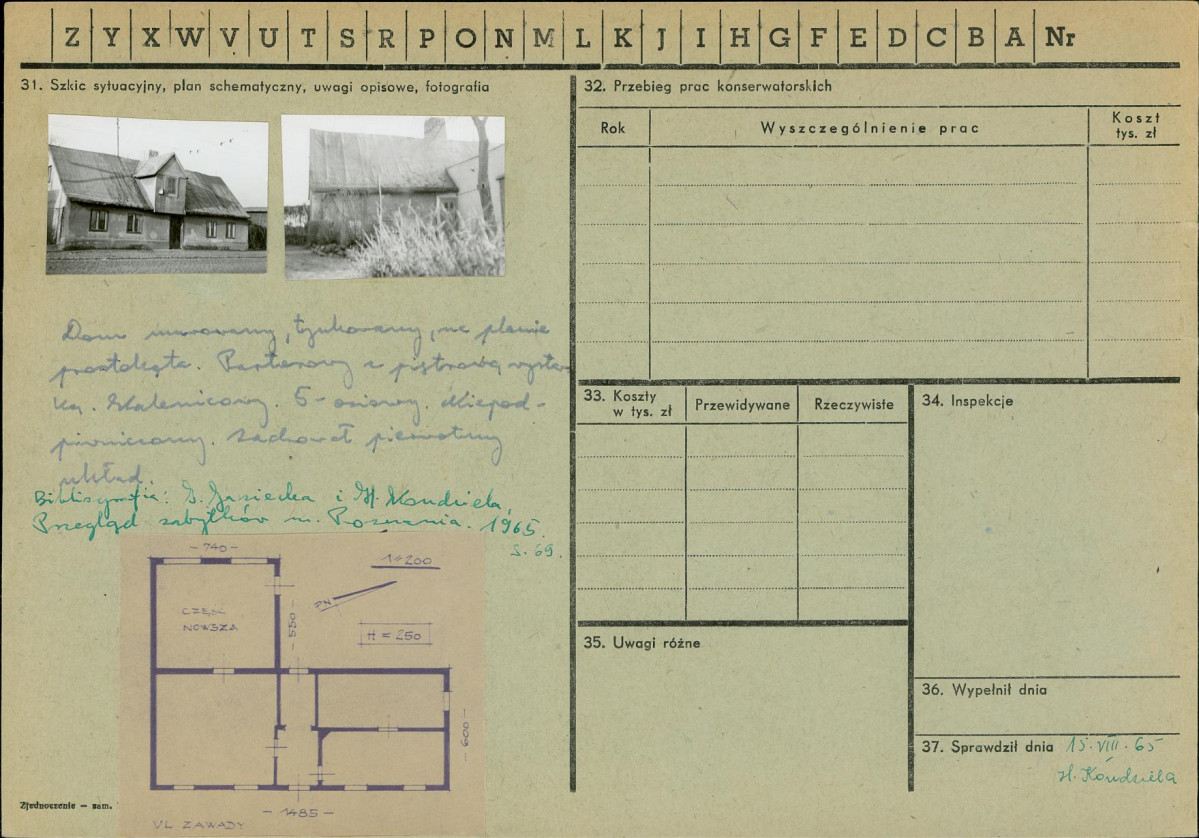 Z Y X W V U T S R P O N M L K J I H G F E D C B A Nr
31. Szkic sytuacyjny, plan schematyczny, uwagi opisowe, fotografia
Dom murowany, tynkowany, na planie
prostokąta. Parterowy z piętrową wystaw-
ką. Kalenicowy. 5-osiowy. Niepod-
piwniczony. Zachował pierwotny
układ.
Bibliografia: G. Gasiecka i H. Kondziela,
Przegląd zabytków m. Poznania. 1965.
s. 69.
- 740 -
1:200
CZĘŚĆ
NOWSZA
- 550 -
PN
H = 250
- 600 -
- 1485 -
UL ZAWADY
Zjednoczenie – zam.
32. Przebieg prac konserwatorskich
Rok
Wyszczególnienie prac
Koszt
tys. zł
33. Koszty
w tys. zł
Przewidywane
Rzeczywiste
34. Inspekcje
35. Uwagi różne
36. Wypełnił dnia
37. Sprawdził dnia 15.VIII.65
H. Kondziela